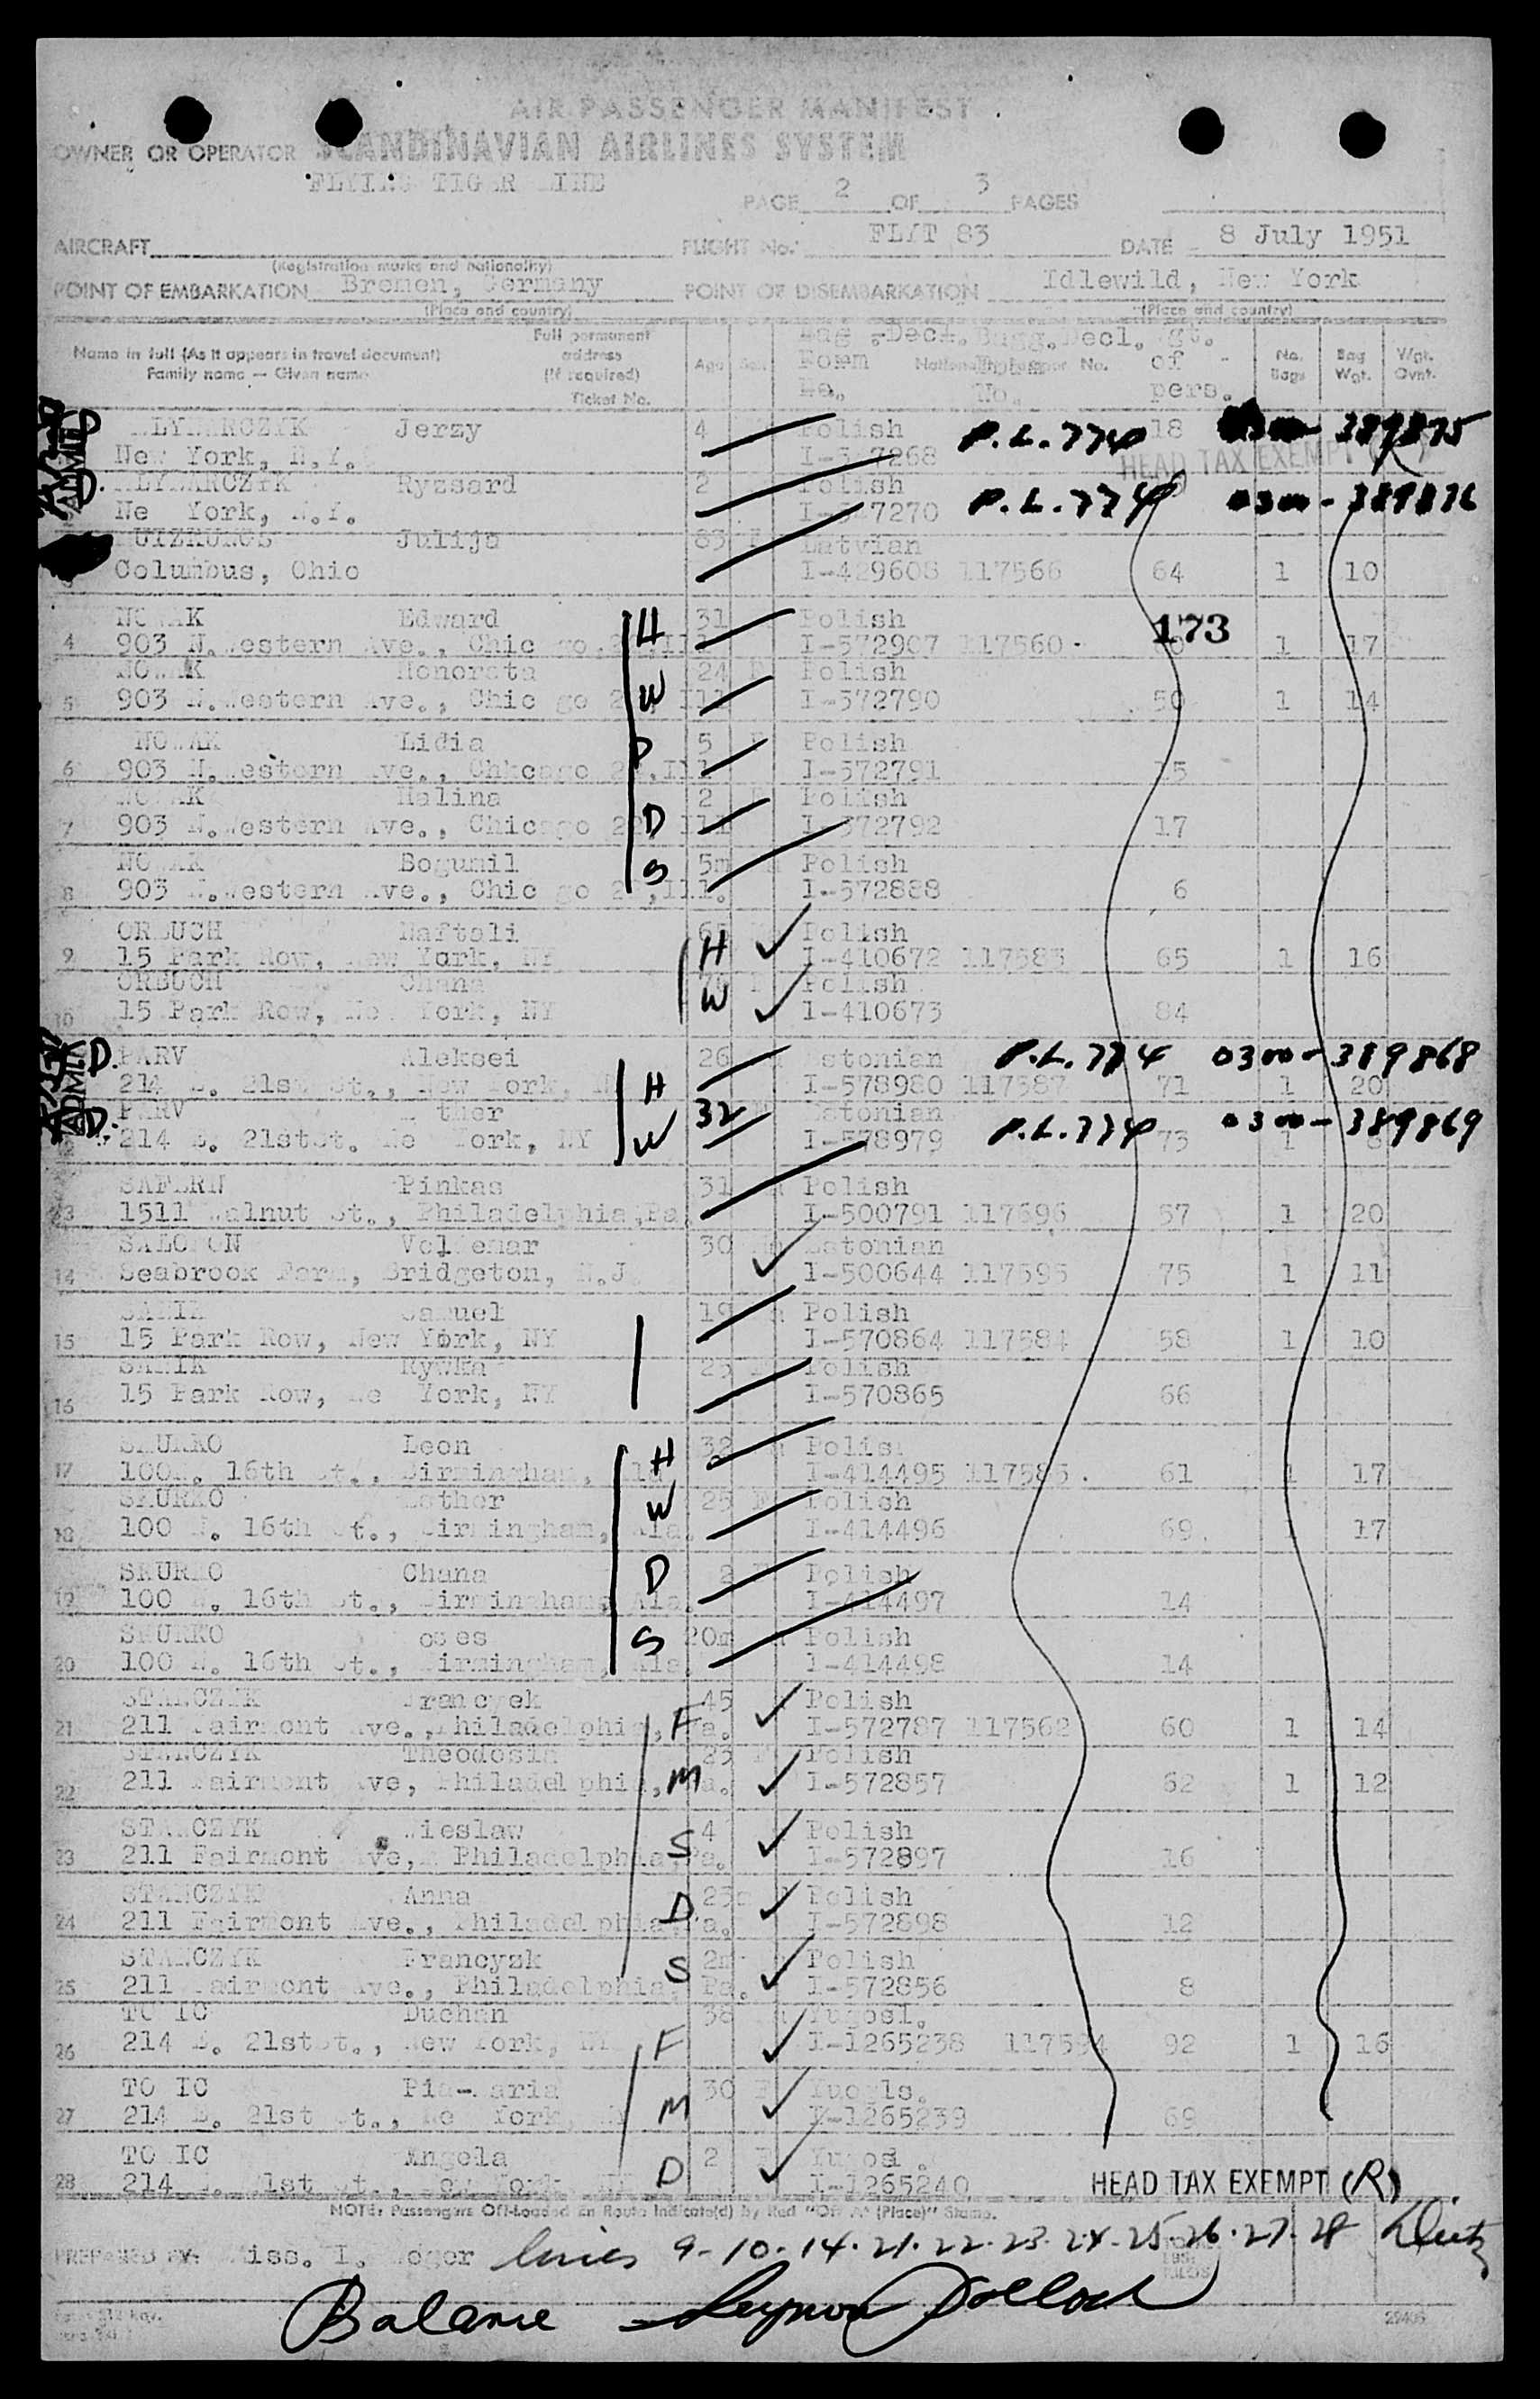 AIR PASSENGER MANIFEST
OWNER OR OPERATOR SCANDINAVIAN AIRLINES SYSTEM
FLYING TIGER LINE
PAGE 2 OF 3 PAGES
AIRCRAFT FLIGHT No. FLYT 83 DATE 8 July 1951
(Registration marks and nationality)
POINT OF EMBARKATION Bremen, Germany POINT OF DISEMBARKATION Idlewild, New York
(Place and country) (Place and country)
Name in full (As it appears in travel document) Family name — Given name
Full permanent address (If required) Ticket No.
Age Sex
Decl. Bagg.Decl. Wgt. of pers.
No. Bags Bag Wgt. Wgt. Ovnt.
Jerzy 4 Polish P.L.774 18 389875
New York, N.Y.
HEAD TAX EXEMPT
Ryzsard 2 Polish P.L.774 0300-389876
Ne York, N.Y. 7270
Julija 83 Latvian
Columbus, Ohio I-429608 117566 64 1 10
NOWAK Edward H 31 Polish 173
4 903 N.Western Ave., Chicago I-572907 117560 1 17
NOWAK Honorata 24 Polish
5 903 N.Western Ave., Chicago W I-572790 50 1 14
NOWAK Lidia D 5 Polish
6 903 N.Western Ave., Chkcago I-572791 15
NOWAK Halina 2 Polish
7 903 N.Western Ave., Chicago D I-572792 17
NOWAK Bogumil 5m Polish
8 903 N.Western Ave., Chicago S I-572888 6
ORBUCH Naftali 65 Polish
9 15 Park Row, New York, NY H I-410672 117583 65 1 16
ORBUCH Chana Polish
10 15 Park Row, New York, NY W I-410673 84
D. PARV Aleksei 26 Estonian P.L.774 0300-389868
214 E. 21st St., New York, H I-578980 117587 71 1 20
D. PARV 32 Estonian P.L.774 0300-389869
214 E. 21stSt. Ne York, NY W I-578979 73 1
Pinkas 31 Polish
13 1511 Walnut St., Philadelphia,Pa. I-500791 117596 57 1 20
Voldemar 30 Estonian
14 Seabrook Farm, Bridgeton, N.J. I-500644 117595 75 1 11
Samuel 19 Polish
15 15 Park Row, New York, NY I-570864 117584 58 1 10
Rywka Polish
16 15 Park Row, Ne York, NY I-570865 66
SKURKO Leon 32 Polish
17 100N. 16th St., Birmingham, H I-414495 117585 61 1 17
SKURKO Esther 25 Polish
18 100 N. 16th St., Birmingham, Ala. W I-414496 69 17
SKURKO Chana 2 Polish
19 100 N. 16th St., Birmingham, Ala. D I-414497 14
SKURKO 20m Polish
20 100 N. 16th St., Birmingham, Ala. S I-414498 14
STANCZYK 45 Polish
21 211 Fairmont Ave.,Philadelphia, Pa. F I-572787 117562 60 1 14
STANCZYK Theodosia Polish
22 211 Fairmont Ave, Philadelphia, Pa. M I-572857 62 1 12
STANCZYK Wieslaw 4 Polish
23 211 Fairmont Ave, Philadelphia,Pa. S I-572897 16
STANCZYK Anna Polish
24 211 Fairmont Ave., Philadelphia,Pa. D I-572898 12
STANCZYK Francyzk 2m Polish
25 211 Fairmont Ave., Philadelphia, Pa. S I-572856 8
TO IC Duchan 38 Yugosl.
26 214 E. 21stSt., New York, NY F I-1265238 117594 92 1 16
TO IC Pia-Maria 30
27 214 E. 21st St., Ne York, M I-1265239 69
TO IC Angela 2
28 214 D I-1265240 HEAD TAX EXEMPT (R)
NOTE: Passengers Off-Loaded En Route Indicate(d) by Red "Off At (Place)" Stamp.
PREPARED BY: Miss. I. lines 9-10-14-21-22-23-24-25-26-27-28
Balance Seymour Pollock
29406